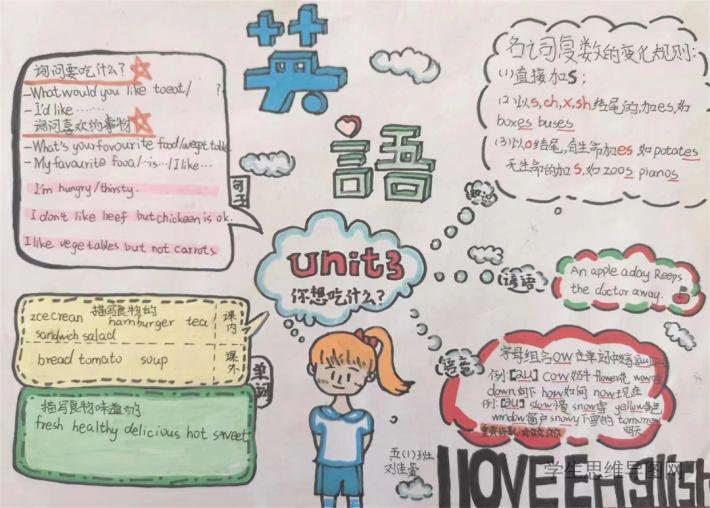 英
語
询问要吃什么?
-What would you like toeat/ ?
-I'd like ……
询问喜欢的事物
-What's your favourite food/
-My favourite food/…is…/I like…
I'm hungry/thirsty.
I don't like beef but chickeen is ok.
I like vegetables but not carrots
句子
名词复数的变化规则:
(1)直接加s;
(2)以s,ch,x,sh结尾的,加es,如
boxes buses
(3)以o结尾,有生命加es 如potatoes
无生命的加s,如zoos pianos
Unit3
你想吃什么?
谚语
An apple a day keeps
the doctor away.
描写食物的
hamburger tea
sandwich salad
课内
bread tomato soup
课外
单词
描写食物味道的
fresh healthy delicious hot sweet
语音
字母组合ow在单词中发音
例: cow奶牛 flower花 wow
down向下 how如何 now现在
例: slow慢 snow雪 yellow黄色
window窗户 snowy下雪的 tomorrow
明天
五(1)班
I LOVE English
学生思维导图网